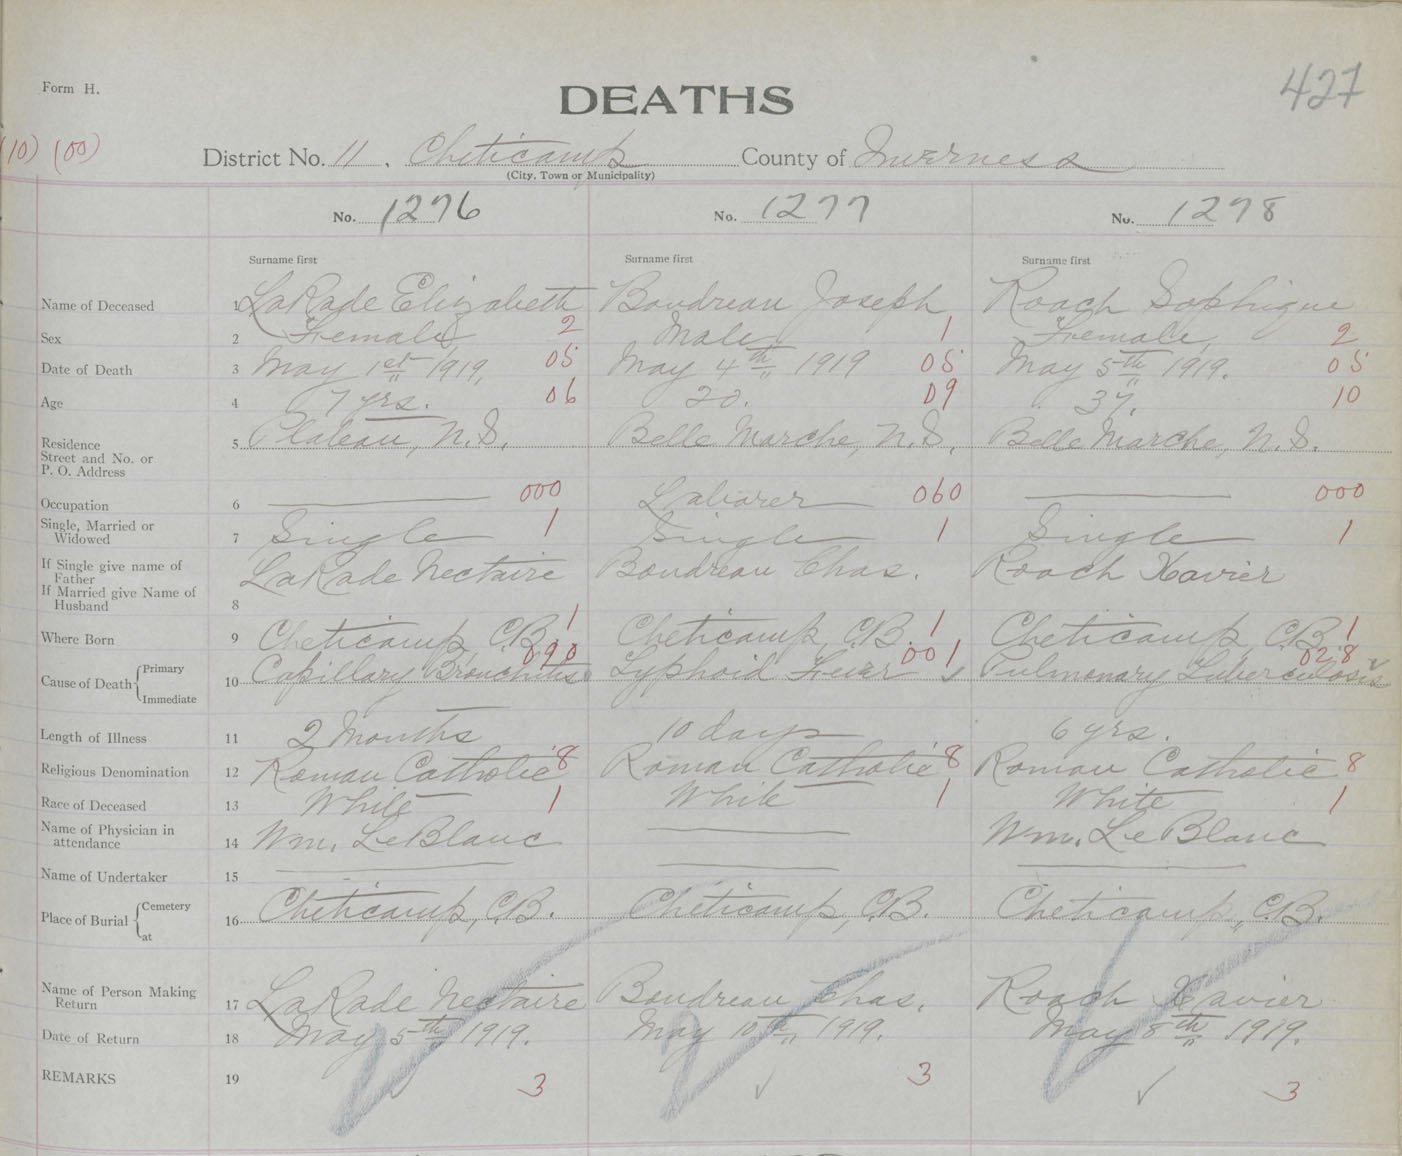 Form H.
427
DEATHS
(10) (00)
District No. 11, Cheticamp County of Inverness
(City, Town or Municipality)
No. 1276 No. 1277 No. 1278
Surname first Surname first Surname first
Name of Deceased 1 LaRade Elizabeth Boudreau Joseph Roach Sophique
Sex 2 Female 2 Male 1 Female, 2
Date of Death 3 May 1st 1919, 05 May 4th 1919 05 May 5th 1919. 05
Age 4 7 yrs. 06 20. 09 37. 10
Residence
Street and No. or
P. O. Address 5 Plateau, N.S. Belle Marche, N.S. Belle Marche, N.S.
Occupation 6 000 Laborer 060 000
Single, Married or
Widowed 7 Single 1 Single 1 Single 1
If Single give name of
Father
If Married give Name of
Husband 8 LaRade Nectaire Boudreau Chas. Roach Xavier
Where Born 9 Cheticamp, C.B. 1 Cheticamp, C.B. 1 Cheticamp, C.B. 1
090 001 028
Cause of Death Primary
Immediate 10 Capillary Bronchitis Typhoid Fever Pulmonary Tuberculosis
Length of Illness 11 2 Months 10 days 6 yrs.
Religious Denomination 12 Roman Catholic 8 Roman Catholic 8 Roman Catholic 8
Race of Deceased 13 White 1 White 1 White 1
Name of Physician in
attendance 14 Wm. LeBlanc Wm. LeBlanc
Name of Undertaker 15
Place of Burial Cemetery
at 16 Cheticamp, C.B. Cheticamp, C.B. Cheticamp, C.B.
Name of Person Making
Return 17 LaRade Nectaire Boudreau Chas. Roach Xavier
Date of Return 18 May 5th 1919. May 10th 1919. May 8th 1919.
REMARKS 19 3 3 3